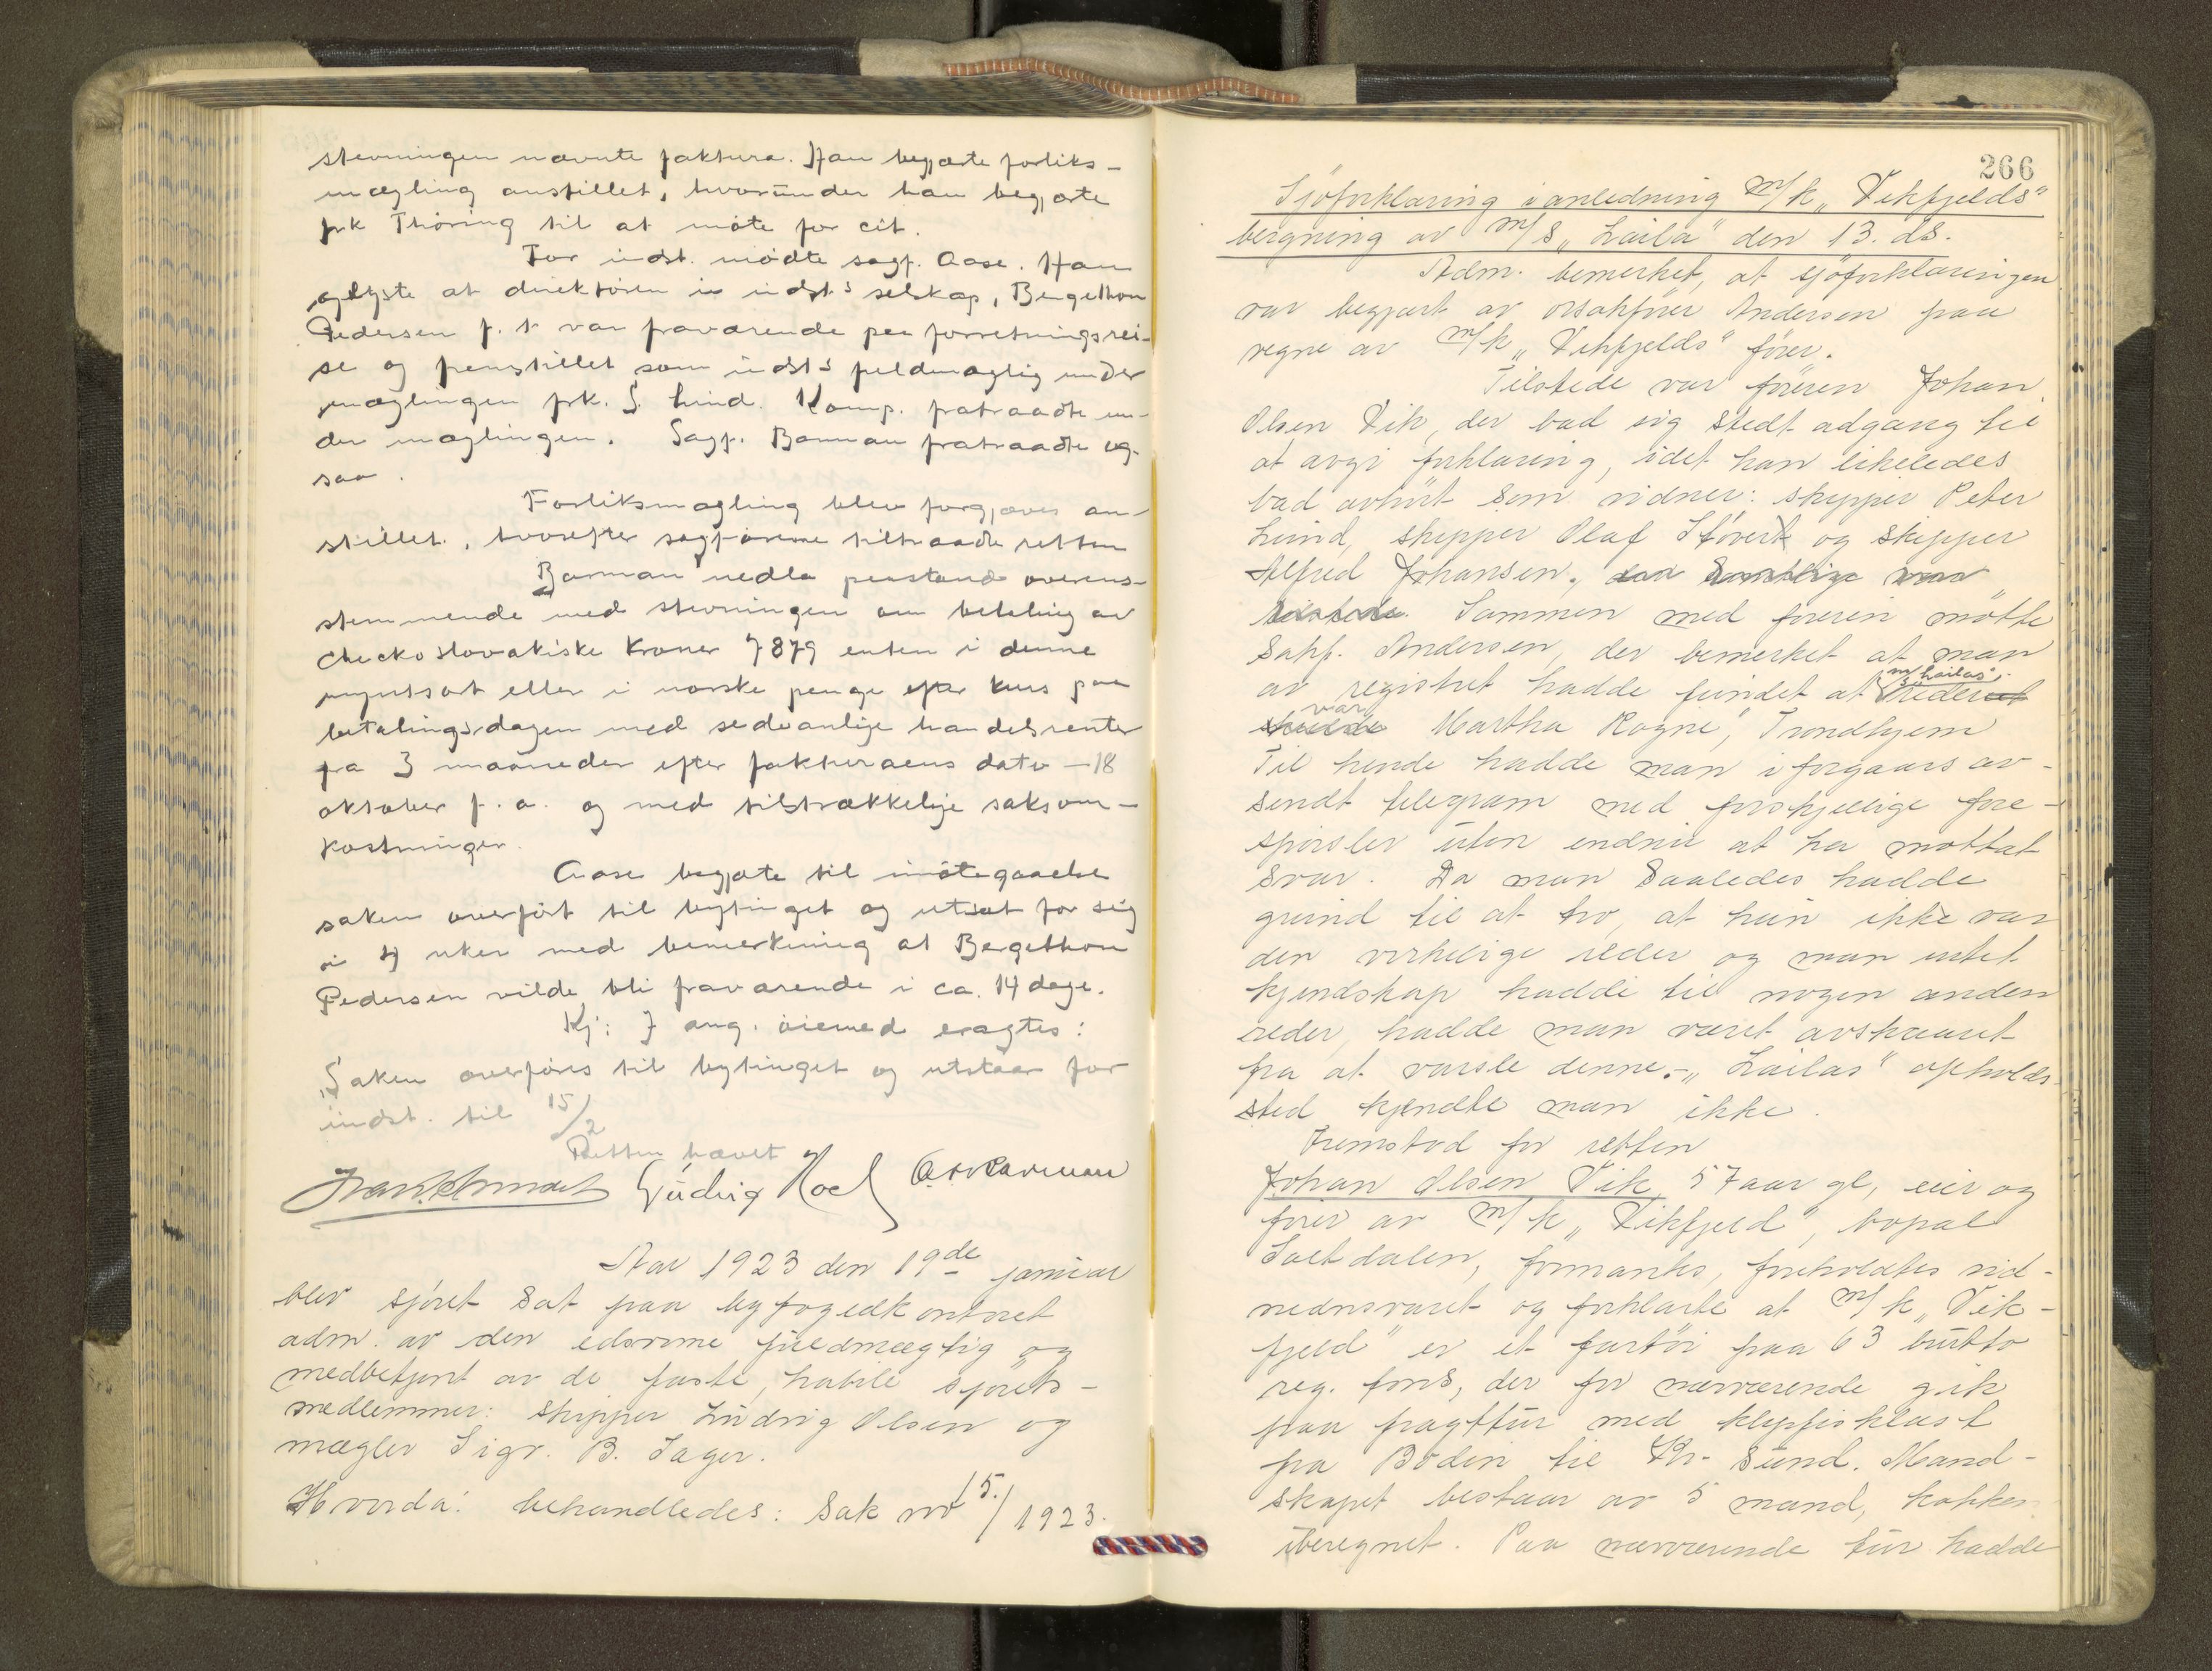 stevningen nævnte faktura. Han begjærte forliks-
mægling anstillet, hvorunder han begjærte
frk Thöring til at möte for cit.
For indst. mödte sagf. Aase. Han
oplyste at direktören i indst's selskap, Bergithon
Pedersen f. t var fraværende paa forretningsrei-
se og fremstillet som indst's fuldmægtig under
mæglingen frk. S. Lind. Komp. fratraadte un-
der mæglingen. Sagf. Borman fratraadte og-
saa.
Forliksmægling blev forgjæves an-
stillet, hvorefter sagförerne tiltraadte retten
Borman nedla paastand overens-
stemmende med stevningen om betaling av
checkoslovakiske Kroner 7879 enten i denne
myntsort eller i norske penge efter kurs paa
betalingsdagen med sedvanlige handelsrenter
fra 3 maaneder efter fakturaens dato - 18
oktober f. a. og med tilstrækkelige saksom-
kostninger.
Aase begjærte til imötegaaelse
saken overfört til bytinget og utsat for sig
i 4 uker med bemerkning at Bergithon
Pedersen vilde bli fraværende i ca. 14 dage.
Kj: I ang. öiemed eragtes:
Saken overföres til bytinget og utstaar for
indst. til 15/2
Retten hævet
Ludvig Roel
Aar 1923 den 19de januar
blev sjöret sat paa byfogedkontoret
adm. av den edsvorne fuldmægtig og
medbetjent av de faste, habile sjörets-
medlemmer: skipper Ludvig Olsen og
mægler Sigv. B. Jager.
Hvorda: behandledes: Sak no 15./1923.
266
Sjöforklaring i anledning m/k "Vikfjelds"
bergning av m/s "Laila" den 13. ds.
Adm. bemerket, at sjöforklaringen
var begjært av orsakförer Andersen paa
vegne av m/k "Vikfjelds" förer.
Tilstede var föreren Johan
Olsen Vik, der bad sig stedt adgang til
at avgi forklaring, idet han likeledes
bad avhört som vidner: skipper Peter
Lund, skipper Olaf Störert og skipper
Alfred Johansen, samtlige var
tilstede. Sammen med föreren mötte
Sakf. Andersen, der bemerket at man
av registret hadde fundet at m/s Lailas rederet
skulde var Martha Rogne, Trondhjem
Til hende hadde man i forgaars av-
sendt telegram med forskjellige fore-
spörsler uten endnu at ha mottat
svar. Da man saaledes hadde
grund til at tro, at hun ikke var
den virkelige reder og man intet
kjendskap hadde til nogen anden
reder, hadde man været avskaaret
fra at varsle denne. - "Lailas" opholds-
sted kjendte man ikke.
Fremstod for retten
Johan Olsen Vik, 57 aar gl, eier og
förer av m/k "Vikfjeld", bopæl
Saltdalen, formantes, foreholdtes vid-
nednsvaret og forklarte at m/k "Vik-
fjeld" er et fartöi paa 63 brutto
reg. tons, der for nærværende gik
paa fragttur med klipfisklast
fra Bodin til Kr. Sund. Mand-
skapet bestaar av 5 mand, kokken
iberegnet. Paa nærværende tur hadde